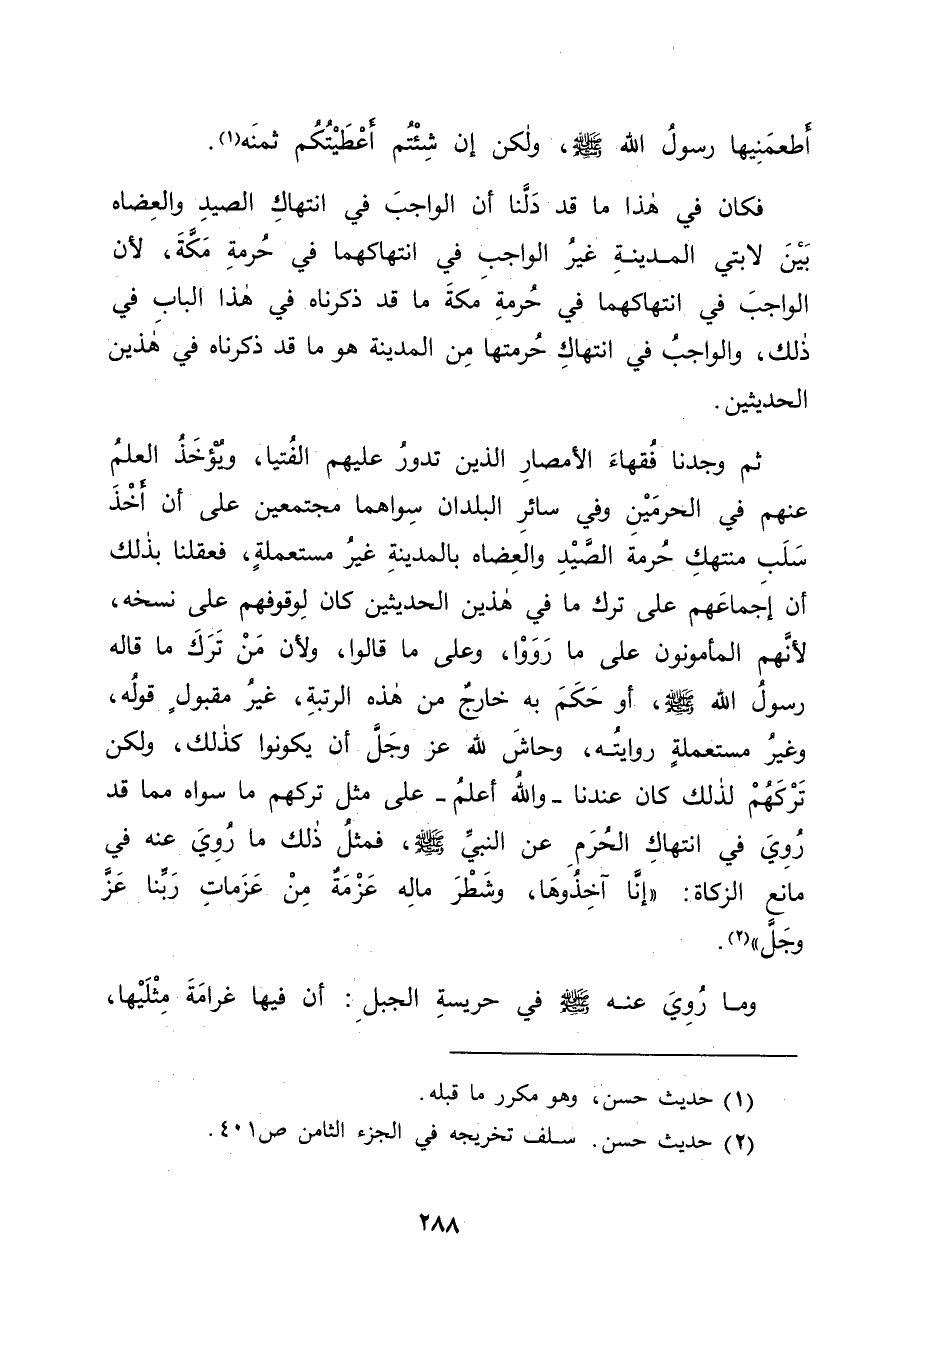 أَطعمَنِيها رسولُ الله ﷺ، ولٰكن إن شِئْتُم أَعْطَيْتُكُم ثمنَه(١).
فكان في هٰذا ما قد دَلَّنا أن الواجبَ في انتهاكِ الصيدِ والعِضاه
بَيْنَ لابتي المـدينـةِ غيرُ الواجبِ في انتهاكهما في حُرمةِ مَكَّةَ، لأن
الواجبَ في انتهاكهما في حُرمةِ مكةَ ما قد ذكرناه في هٰذا البابِ في
ذٰلك، والواجبُ في انتهاكِ حُرمتها مِن المدينة هو ما قد ذكرناه في هٰذين
الحديثين.
ثم وجدنا فُقهاءَ الأمصارِ الذين تدورُ عليهم الفُتيا، ويُؤْخَذُ العلمُ
عنهم في الحرمَيْنِ وفي سائرِ البلدان سِواهما مجتمعين على أن أَخْذَ
سَلَبِ منتهكِ حُرمة الصَّيْدِ والعِضاه بالمدينةِ غيرُ مستعملةٍ، فعقلنا بذٰلك
أن إجماعَهم على ترك ما في هٰذين الحديثين كان لِوقوفهم على نسخه،
لأنَّهم المأمونون على ما رَوَوْا، وعلى ما قالوا، ولأن مَنْ تَرَكَ ما قاله
رسولُ الله ﷺ، أو حَكَمَ به خارجٌ من هٰذه الرتبةِ، غيرُ مقبولٍ قولُه،
وغيرُ مستعملةٍ روايتُـه، وحاشَ لله عز وجَلَّ أن يكونوا كذٰلك، ولكن
تَرْكَهُمْ لذٰلك كان عندنا ـ واللهُ أعلمُ ـ على مثل تركهم ما سواه مما قد
رُوِيَ في انتهاكِ الحُرَمِ عن النبيِّ ﷺ، فمثلُ ذٰلك ما رُوِيَ عنه في
مانع الزكاة: «إنَّا آخِذُوهَا، وشَطْرَ مالِه عَزْمَةٌ مِنْ عَزَماتِ رَبِّنا عَزَّ
وجَلَّ»(٢).
ومـا رُوِيَ عنـه ﷺ في حريسةِ الجبلِ: أن فيها غرامَةَ مِثْلَيْها،
(١) حديث حسن، وهو مكرر ما قبله.
(٢) حديث حسن. سـلف تخريجه في الجزء الثامن ص٤٠١.
٢٨٨